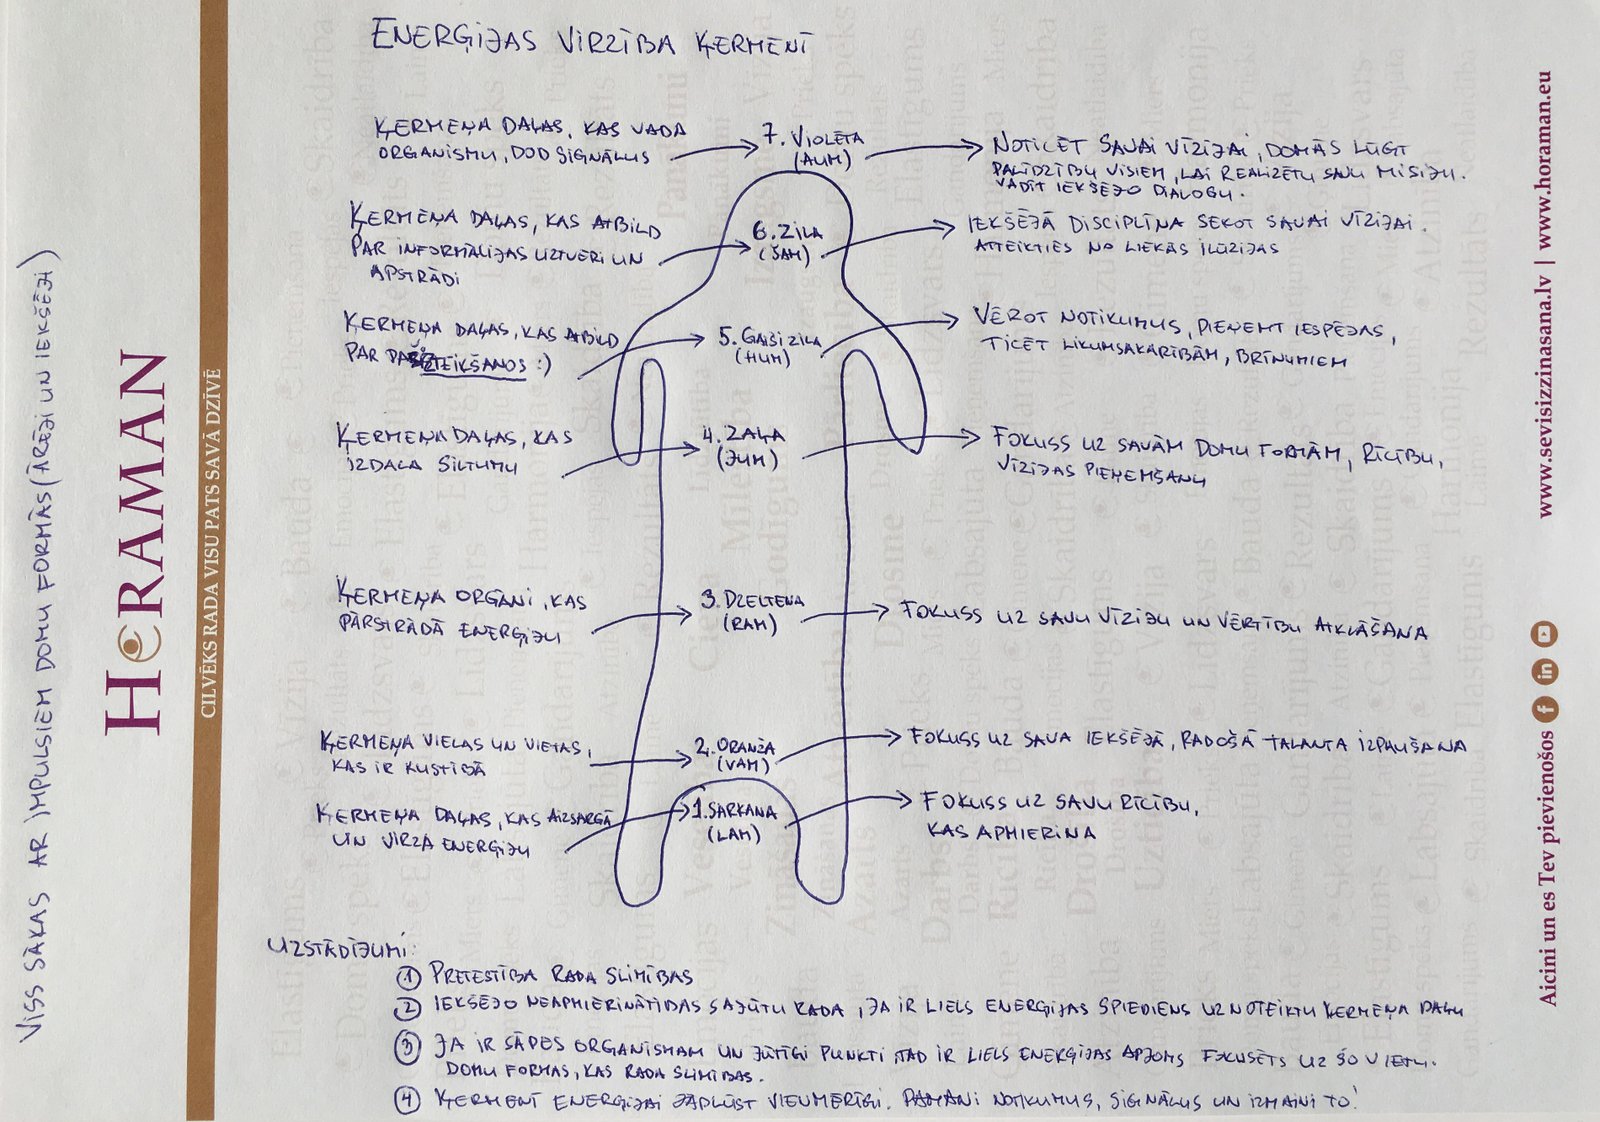 ENERĢIJAS VIRZĪBA ĶERMENĪ
ĶERMEŅA DAĻAS, KAS VADA
ORGANISMU, DOD SIGNĀLUS
7. VIOLETA
(AUM)
NOTICĒT SAVAI VĪZIJAI, DOMĀS LŪGT
PALĪDZĪBU VISIEM, LAI REALIZĒTU SAVU MISIJU.
VADĪT IEKŠĒJO DIALOGU.
ĶERMEŅA DAĻAS, KAS ATBILD
PAR INFORMĀCIJAS UZTVERI UN
APSTRĀDI
6. ZILA
(ŠAM)
IEKŠĒJĀ DISCIPLĪNA SEKOT SAVAI VĪZIJAI.
ATTEIKTIES NO LIEKĀS ILŪZIJAS
ĶERMEŅA DAĻAS, KAS ATBILD
PAR :)
5. GAIŠI ZILA
(HUM)
VĒROT NOTIKUMUS, PIEŅEMT IESPĒJAS,
TICĒT LIKUMSAKARĪBĀM, BRĪNUMIEM
ĶERMEŅA DAĻAS, KAS
IZDALA SILTUMU
4. ZAĻA
(JUM)
FOKUSS UZ SAVĀM DOMU FORMĀM, RĪCĪBU,
VĪZIJAS PIEŅEMŠANU
ĶERMEŅA ORGĀNI, KAS
PĀRSTRĀDĀ ENERĢIJU
3. DZELTENA
(RAM)
FOKUSS UZ SAVU VĪZIJU UN VĒRTĪBU ATKLĀŠANA
ĶERMEŅA VIELAS UN VIETAS,
KAS IR KUSTĪBĀ
2. ORANŽA
(VAM)
FOKUSS UZ SAVA IEKŠĒJĀ, RADOŠĀ TALANTA IZPAUŠANA
ĶERMEŅA DAĻAS, KAS AIZSARGĀ
UN VIRZA ENERĢIJU
1. SARKANA
(LAM)
FOKUSS UZ SAVU RĪCĪBU,
KAS APMIERINA
UZSTĀDĪJUMI:
1 PRETESTĪBA RADA SLIMĪBAS
2 IEKŠĒJO NEAPMIERINĀTĪBAS SAJŪTU RADA, JA IR LIELS ENERĢIJAS SPIEDIENS UZ NOTEIKTU ĶERMEŅA DAĻU
3 JA IR SĀPES ORGANISMAM UN JŪTĪGI PUNKTI, TAD IR LIELS ENERĢIJAS APJOMS FOKUSĒTS UZ ŠO VIETU.
DOMU FORMAS, KAS RADA SLIMĪBAS.
4 ĶERMENĪ ENERĢIJAI JĀPLŪST VIENMĒRĪGI. PAMANI NOTIKUMUS, SIGNĀLUS UN IZMAINI TO!
VISS SĀKAS AR IMPULSIEM DOMU FORMĀS (ĀRĒJI UN IEKŠĒJI)
HORAMAN
CILVĒKS RADA VISU PATS SAVĀ DZĪVĒ
Aicini un es Tev pievienošos
www.sevisizzinasana.lv | www.horaman.eu